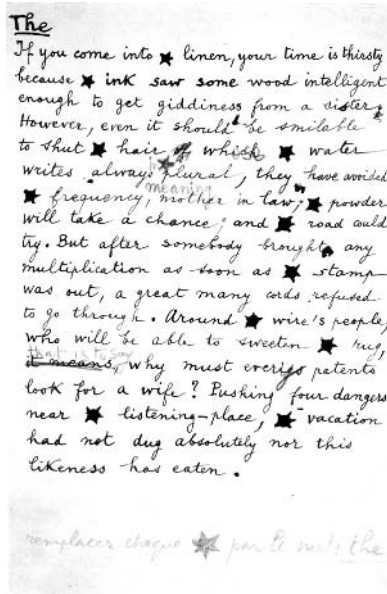 The
If you come into ★ linen, your time is thirsty
because ★ ink saw some wood intelligent
enough to get giddiness from a sister.
However, even it should be smilable
to shut ★ hair of which ★ water
writes always plural, they have avoided
★ frequency, meaning mother in law; ★ powder
will take a chance; and ★ road could
try. But after somebody brought any
multiplication as soon as ★ stamp
was out, a great many cords refused
to go through. Around ★ wire's people,
who will be able to sweeten ★ rug,
that is to say
it means, why must everigs patents
look for a wife? Pushing four dangers
near ★ listening-place, ★ vacation
had not dug absolutely nor this
likeness has eaten.
remplacer chaque ★ par le mot: the